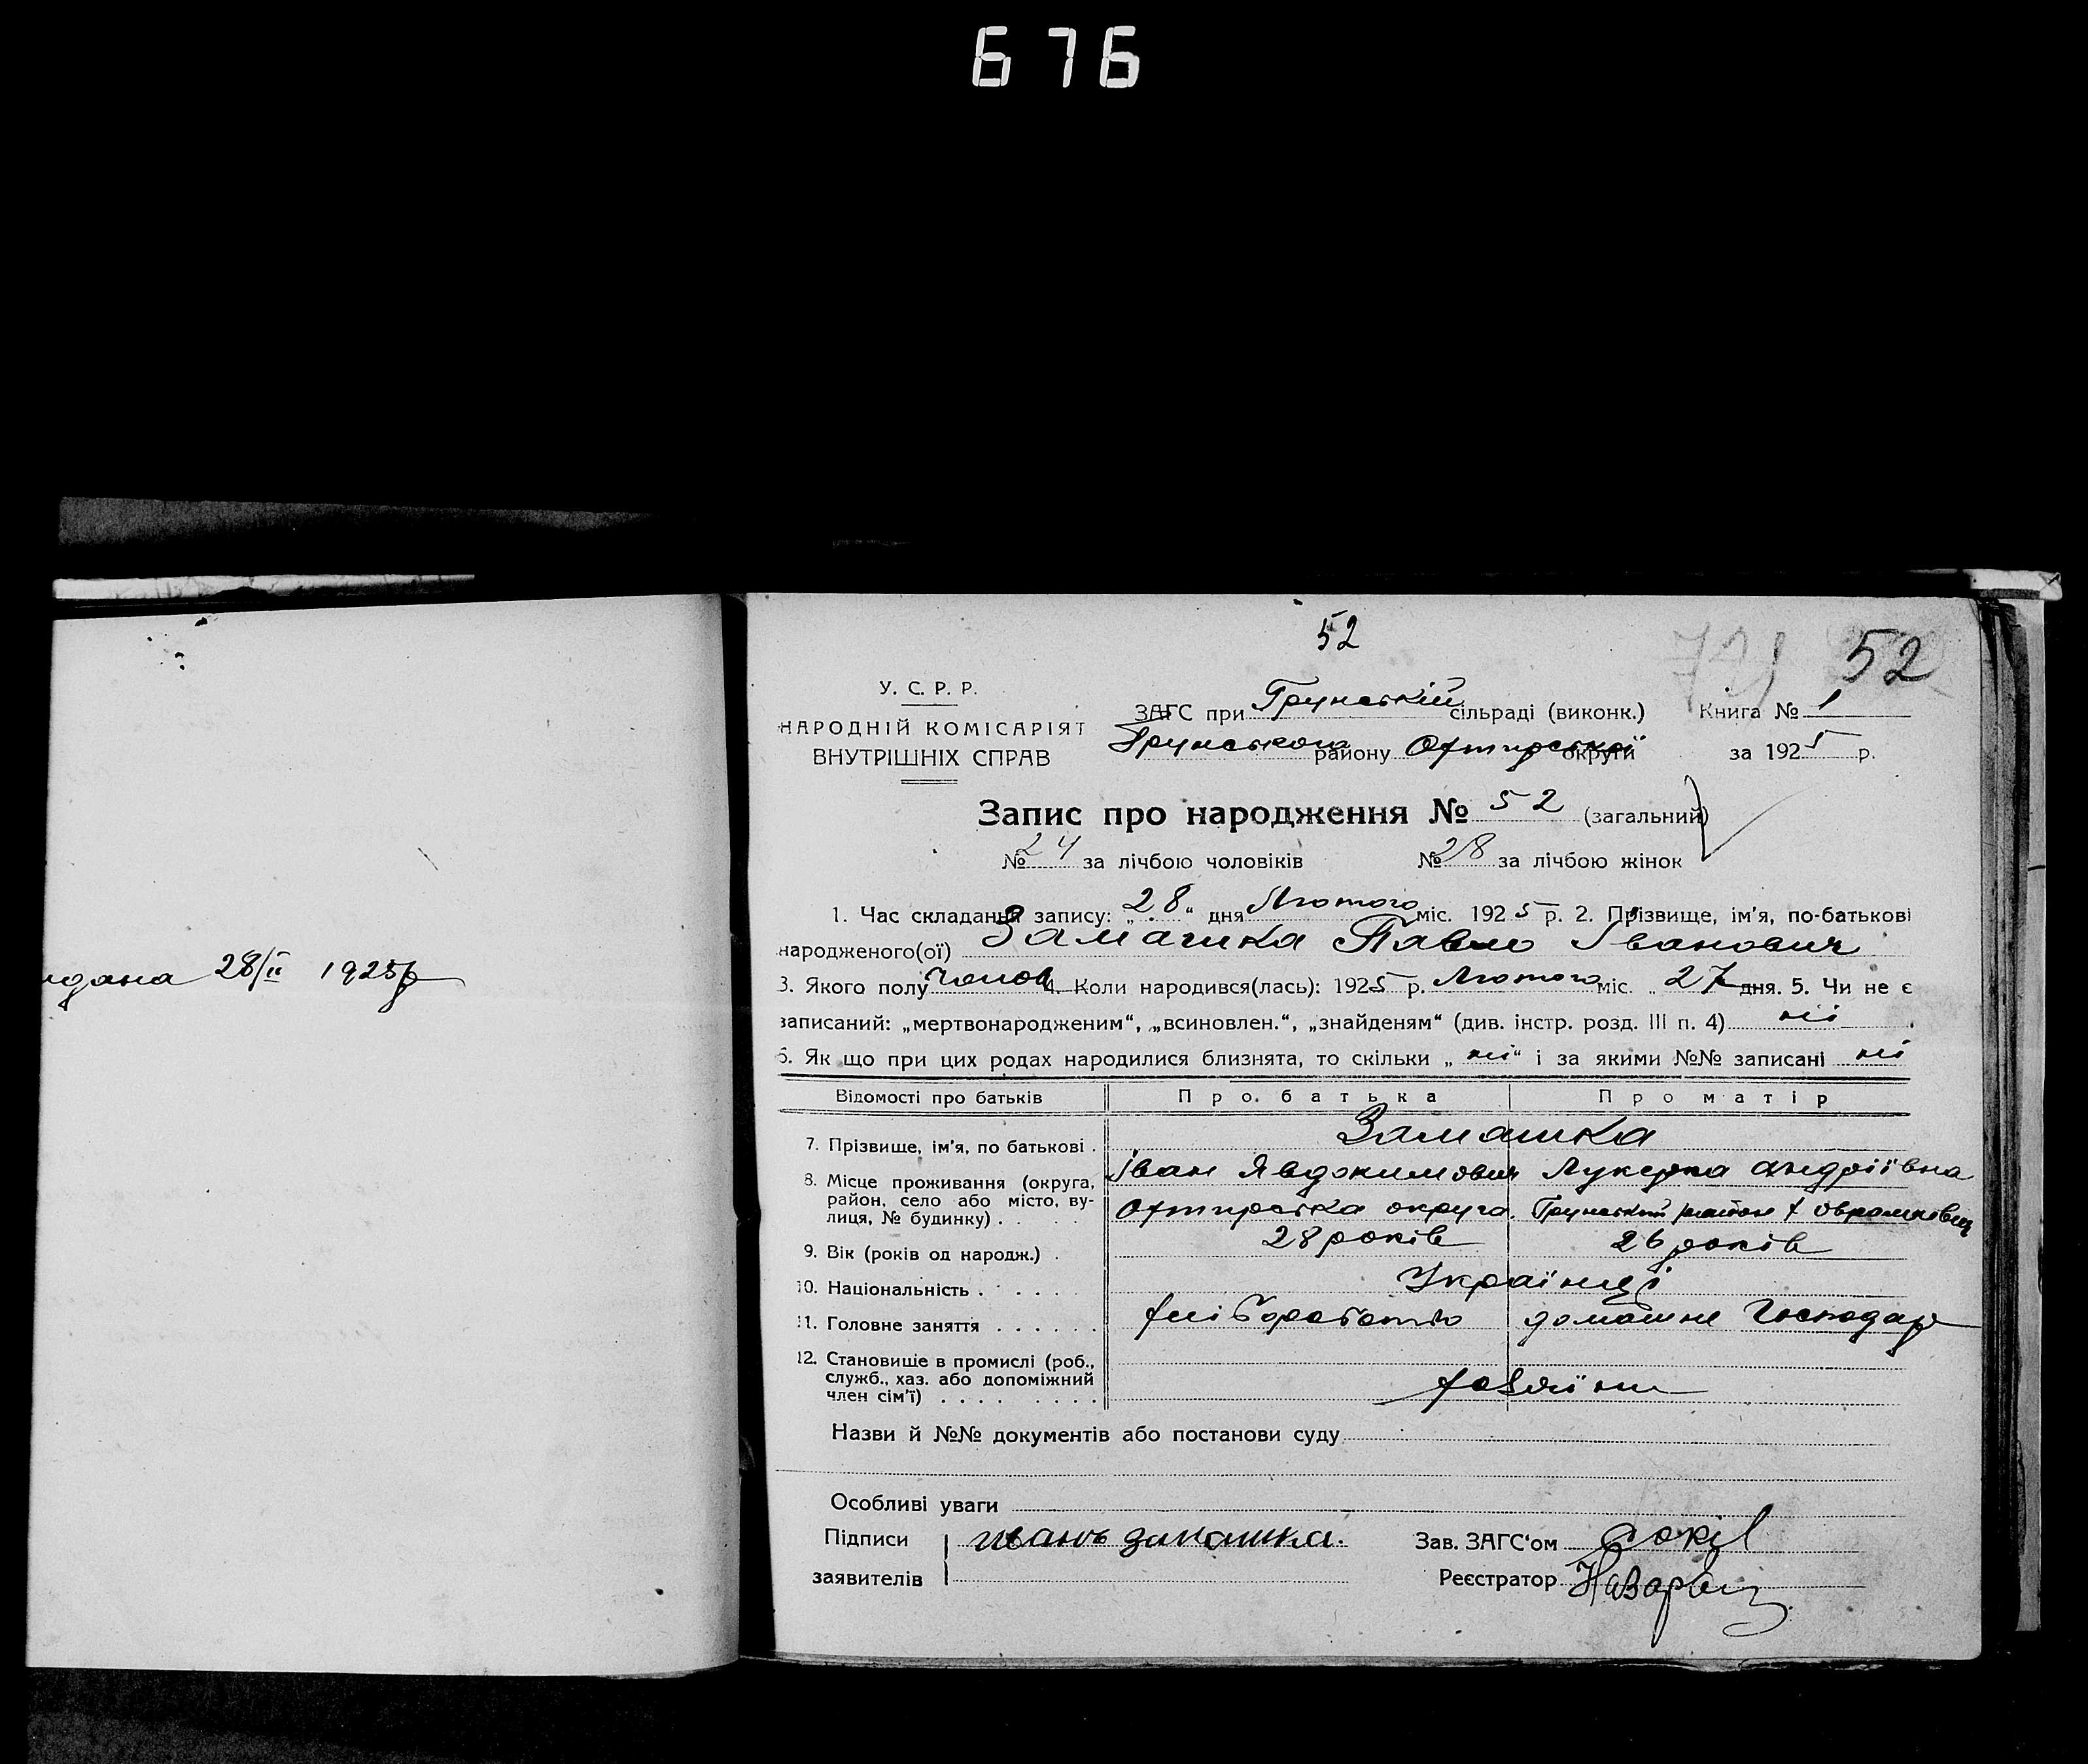 676
52
721 52
У. С. Р. Р.
НАРОДНІЙ КОМІСАРІЯТ
ВНУТРІШНІХ СПРАВ
ЗАГС при Грунській сільраді (виконк.) Книга № 1
Грунського району Охтирської округи за 1925 р.
Запис про народження № 52 (загальний)
№ 24 за лічбою чоловіків № 28 за лічбою жінок
1. Час складання запису: „28“ дня Лютого міс. 1925 р. 2. Прізвище, ім'я, по-батькові
народженого(ої) Замашка Павло Іванович
3. Якого полу чолов 4. Коли народився(лась): 1925 р. Лютого міс. „27 дня. 5. Чи не є
записаний: „мертвонародженим“, „всиновлен.“, „знайденям“ (див. інстр. розд. III п. 4) ні
6. Як що при цих родах народилися близнята, то скільки „ні“ і за якими №№ записані ні
Відомості про батьків Про батька Про матір
7. Прізвище, ім'я, по батькові . Замашка
Іван Явдокимович Лукерка Андріївна
8. Місце проживання (округа, район, село або місто, вулиця, № будинку) . Охтирська округа. Грунський район х
9. Вік (років од народж.) . 28 років 26 років
10. Національність . Українці
11. Головне заняття . хліборобство домашнє господар
12. Становище в промислі (роб., служб., хаз. або допоміжний член сім'ї) . хазяїни
Назви й №№ документів або постанови суду
Особливі уваги
Підписи заявителів иванъ замашка.
Зав. ЗАГС'ом Сокіл
Реєстратор
идана 28/II 1925р